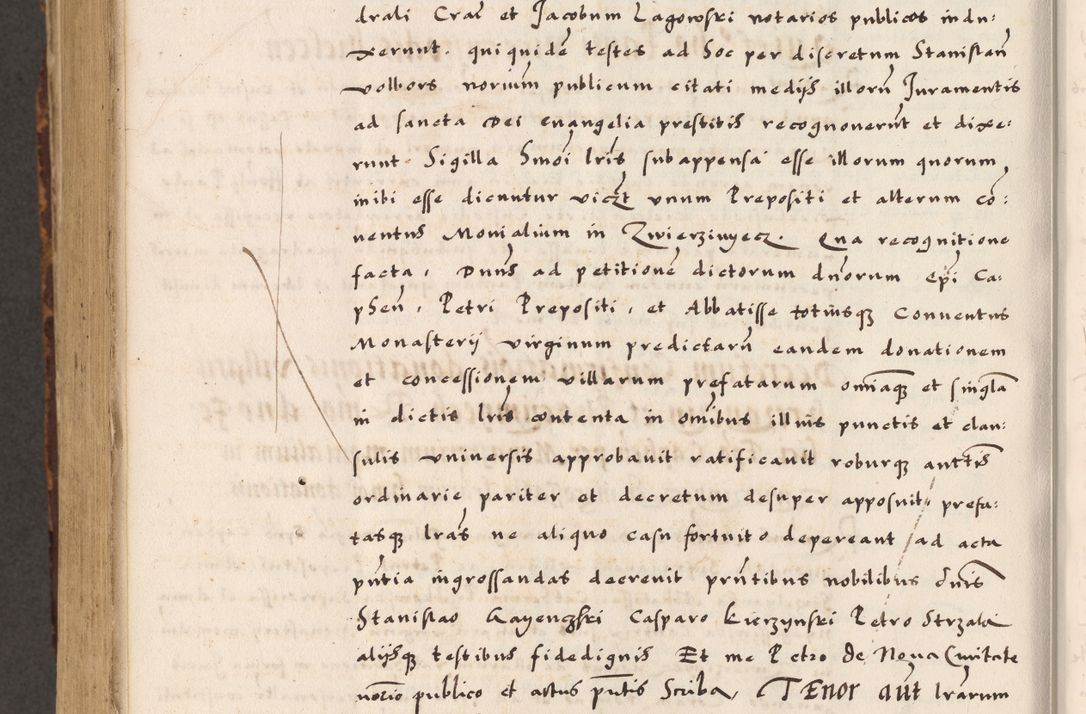 drali Craĉ et Jacobum Lagowski notarios publicos indu:
xerunt. qui quidẽ testes ad hoc per discretum Stanislaũ
volbors noriũm publicum citati medijs illorũ Juramentis
ad sancta Dei Evangelia prestitis recognoverũt et dixe:
runt Sigilla hmõi lris subappensa esse illorum quorum
inibi esse dicuntur viczt unum Prepositi et alterum cõ:
ventus Monialium in Zwierziniyecz. Qua recognitione
facta, Dnns ad petitionẽ dictorum dnorum Epi Ca:
phen, Petri Prepositi, et Abbatisse totiusqз Conventus
Monasterij virginum predictarũ eandem donationem
et concessionem villarum prefatarum omiaqз et singla
in dictis lris contenta in omibus illius punctis et clau:
sulis universis approbavit ratificavit roburqз aucttis
ordinarie pariter et decretum desuper apposuit, prefa:
tasqз lras ne aliquo casu fortuito depereant ad acta
pntia ingrossandas decrevit prntibus nobilibus dnis
Stanislao Gayenczski Casparo Kierzynski Petro Strzala
alijsqз testibus fidedignis Et me Petro de Nova Civitate
norio publico et actus pntis Scriba, TENOR aut lrarum